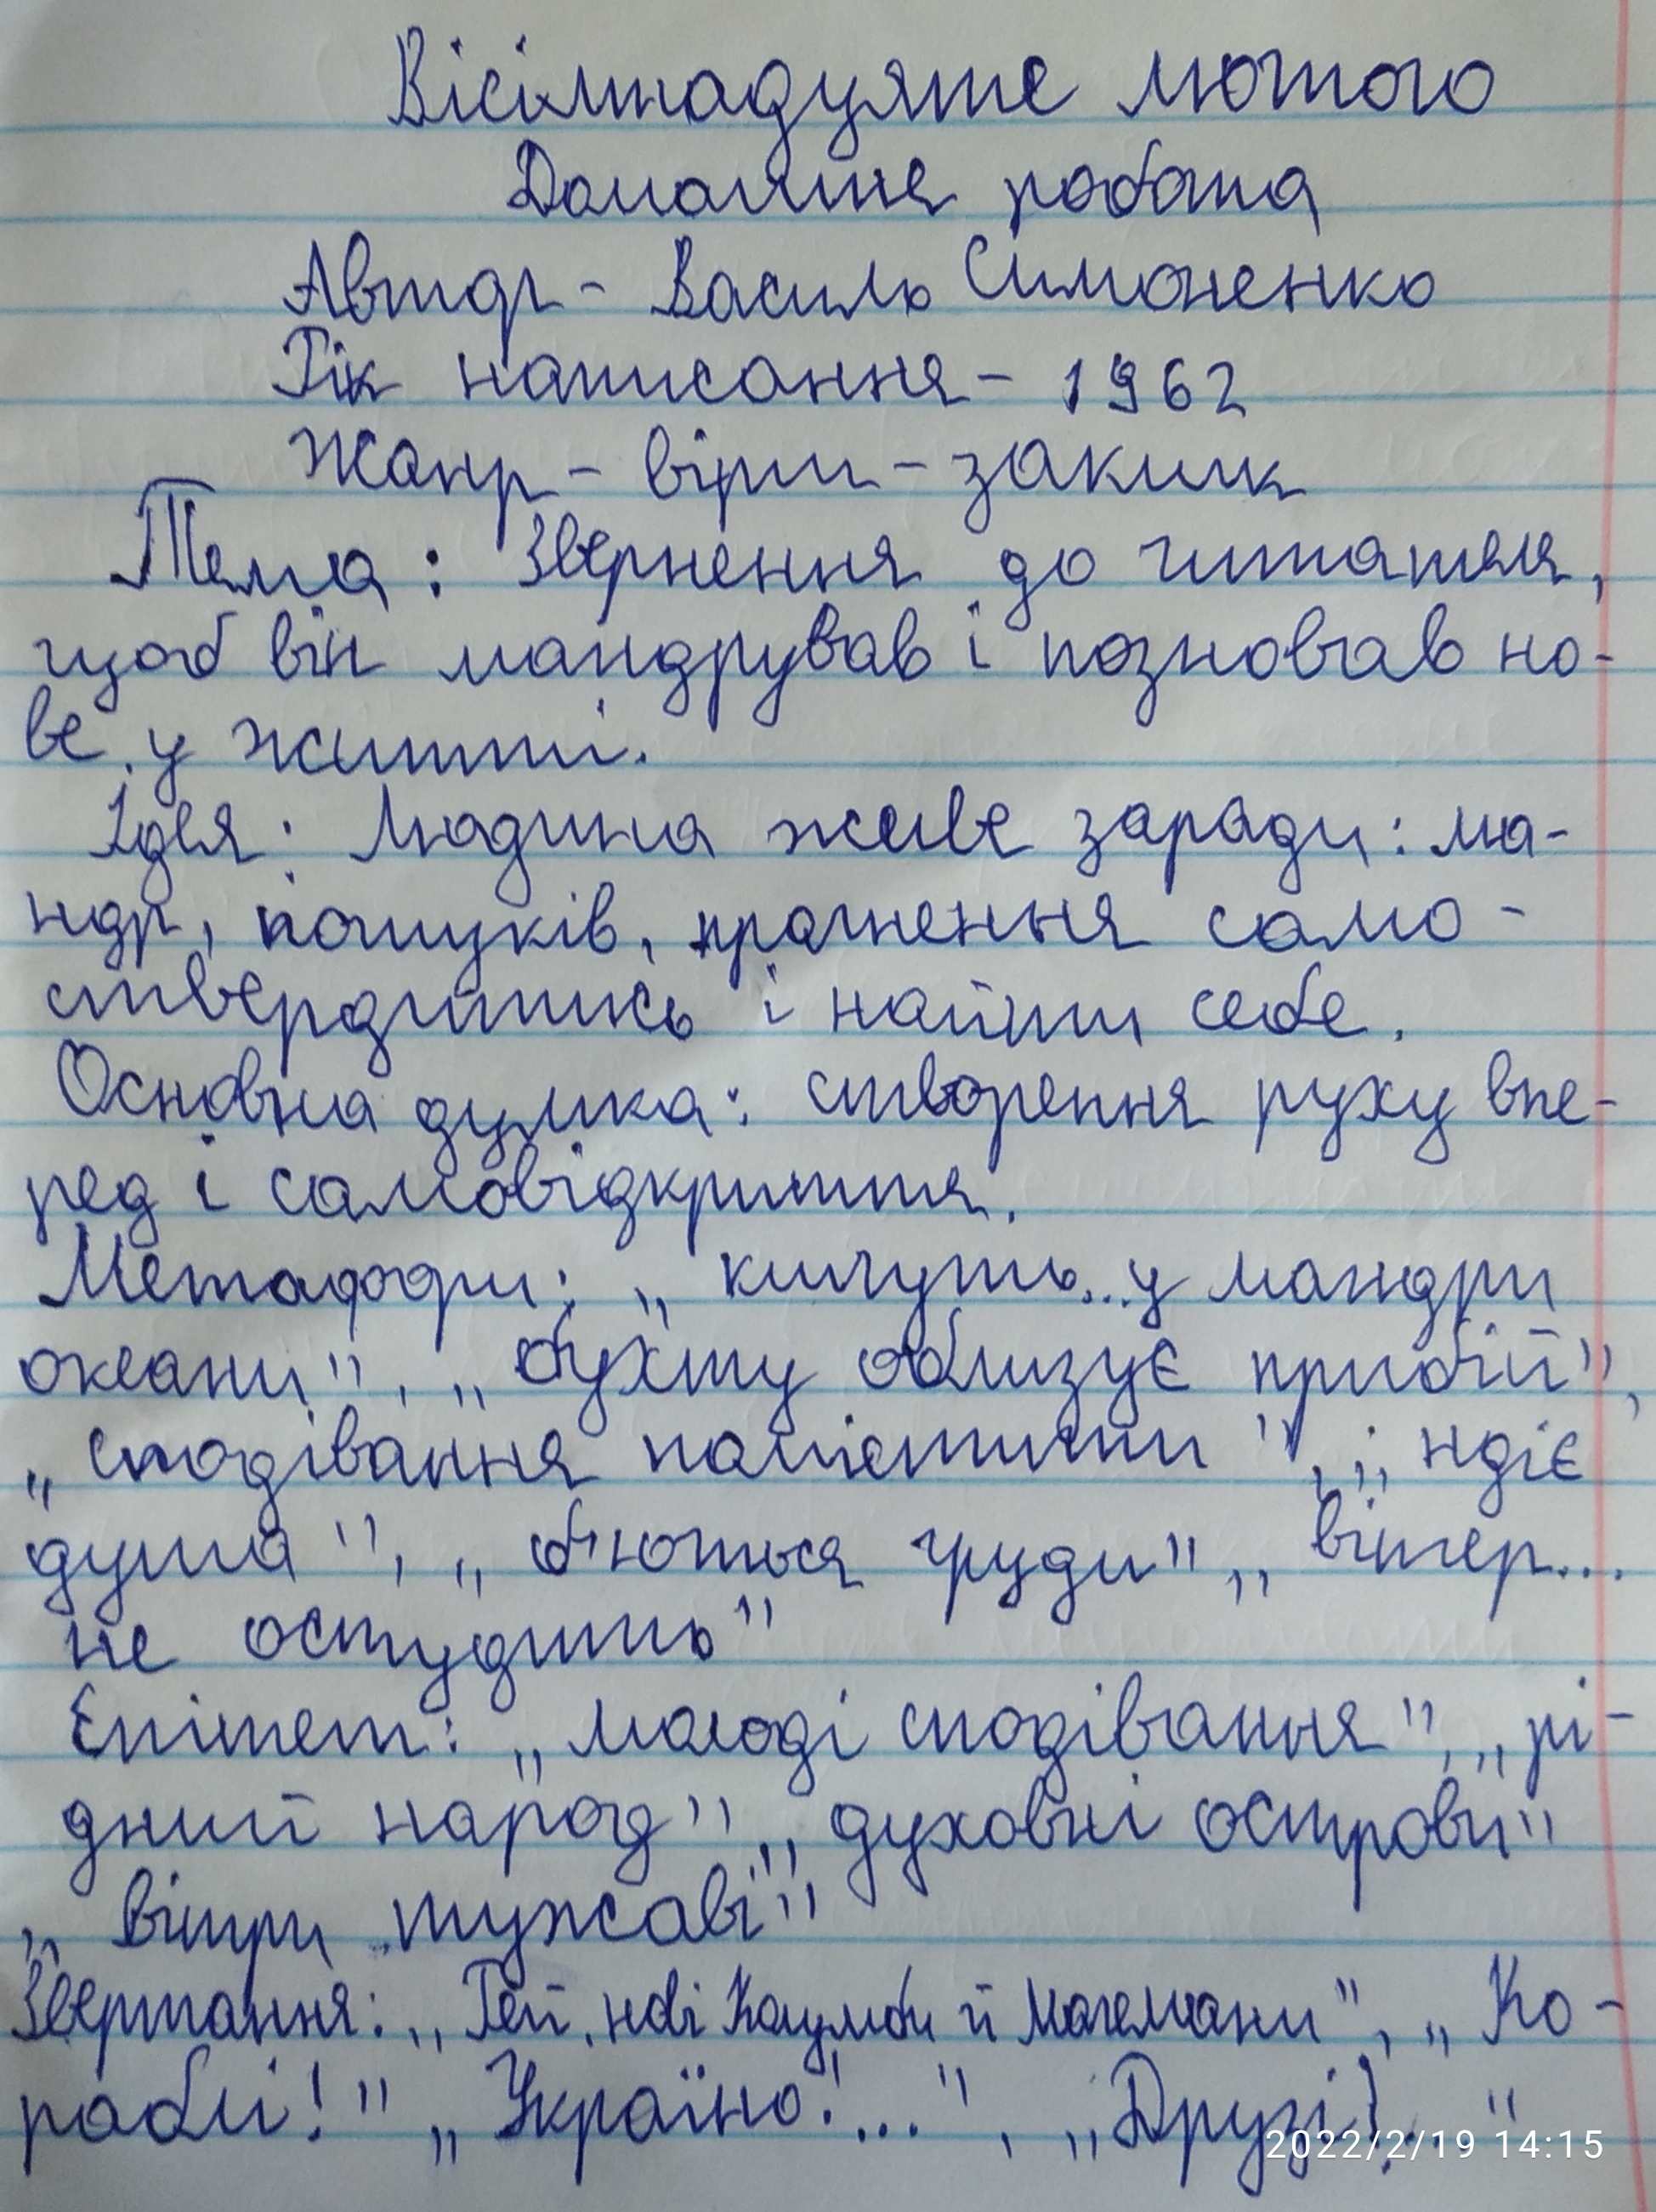 Вісімнадцяте лютого
Домашня робота
Автор - Василь Симоненко
Рік написання - 1962
Жанр - вірш - заклик
Тема: Звернення до читателя,
щоб він мандрував і познавав но-
ве у житті.
Ідея: Людина живе заради: ма-
ндр, пошуків, прагнення само-
ствердитись і найти себе.
Основна думка: створення руху впе-
ред і самовідкриття.
Метафори: „кличуть... у мандри
океани", „бухту облизує прибій",
„сподівання помістити", „ндіє
душа", „б'ються груди" „вітер...
не остудить"
Епітет: „молоді сподівання", „рі-
дний народ" „духовні острови"
„вітри тужаві"
Звертання: „Гей, нові Колумби й Магеллани", „Ко-
раблі!" „Україно!...", „Друзі!.."
2022/2/19 14:15